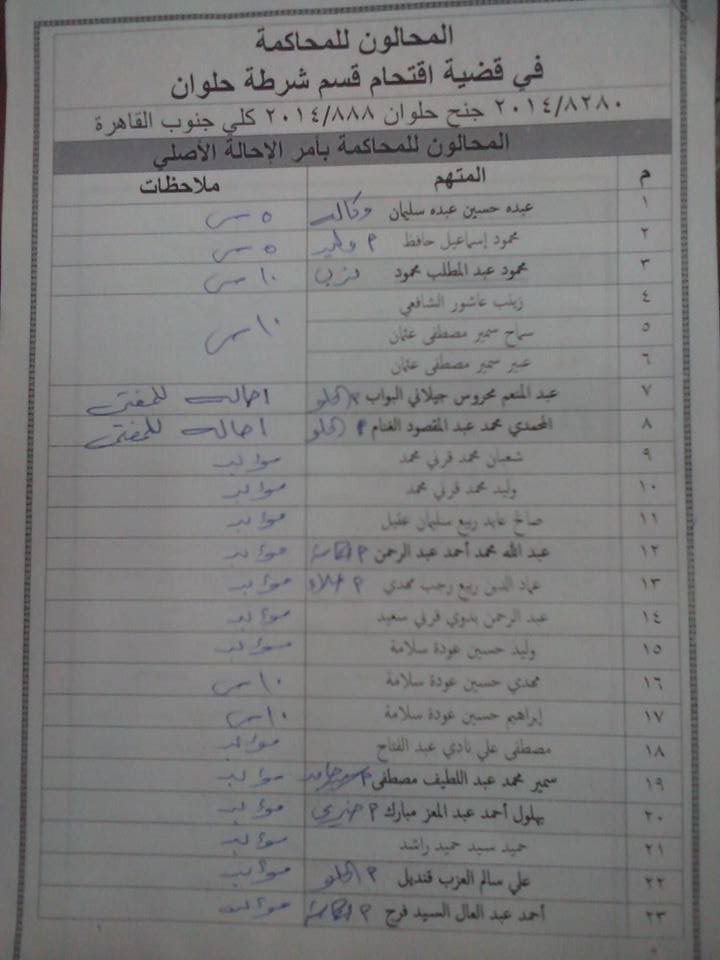 المحالون للمحاكمة
في قضية اقتحام قسم شرطة حلوان
٢٠١٤/٨٢٨٠ جنح حلوان ٢٠١٤/٨٨٨ كلي جنوب القاهرة
المحالون للمحاكمة بأمر الإحالة الأصلي
م المتهم ملاحظات
١ عبده حسين عبده سليمان وكالة ٥ س
٢ محمود إسماعيل حافظ ٥ س
٣ محمود عبد المطلب محمود ١٠ س
٤ زينب عاشور الشافعي
٥ سماح سمير مصطفى عثمان ١٠ س
٦ عبير سمير مصطفى عثمان
٧ عبد المنعم محروس جيلاني البواب م الحلو احالة للمفتى
٨ المحمدي محمد عبد المقصود الغنام م الحلو احالة للمفتى
٩ شعبان محمد قرني محمد مؤبد
١٠ وليد محمد قرني محمد مؤبد
١١ صالح عابد ربيع سليمان عقيل مؤبد
١٢ عبد الله محمد أحمد عبد الرحمن م مؤبد
١٣ عماد الدين ربيع رجب محمدي م علاء مؤبد
١٤ عبد الرحمن بدوي قرني سعيد مؤبد
١٥ وليد حسين عودة سلامة مؤبد
١٦ محمدي حسين عودة سلامة ١٠ س
١٧ إبراهيم حسين عودة سلامة ١٠ س
١٨ مصطفى علي نادي عبد الفتاح مؤبد
١٩ سمير محمد عبد اللطيف مصطفى م مؤبد
٢٠ بهلول أحمد عبد المعز مبارك م مؤبد
٢١ حميد سيد حميد راشد مؤبد
٢٢ علي سالم العزب قنديل م الحلو مؤبد
٢٣ أحمد عبد العال السيد فرج م مؤبد